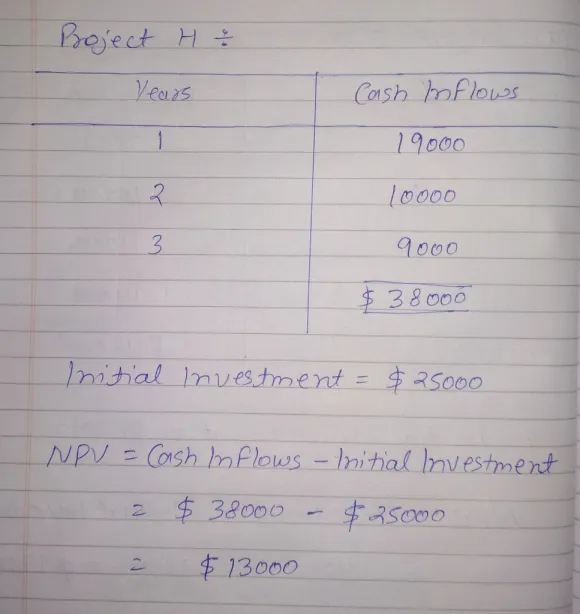 Project H ÷
Years Cash Inflows
1 19000
2 10000
3 9000
$ 38000
Initial Investment = $ 25000
NPV = Cash Inflows - Initial Investment
= $ 38000 - $ 25000
= $ 13000